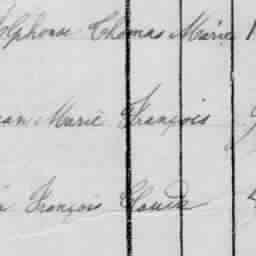 olphonse Thomas Marie
ean Marie François
François Claude